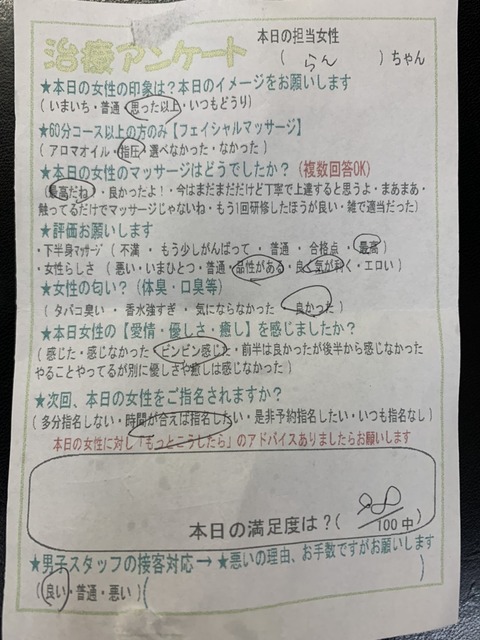 本日の担当女性
治療アンケート ( らん )ちゃん
★本日の女性の印象は?本日のイメージをお願いします
( いまいち・普通・思った以上・いつもどうり)
★60分コース以上の方のみ【フェイシャルマッサージ】
( アロマオイル・指圧・選べなかった・なかった )
★本日の女性のマッサージはどうでしたか?(複数回答OK)
(最高だね・良かったよ!・今はまだまだだけど丁寧で上達すると思うよ・まあまあ・
触ってるだけでマッサージじゃないね・もう1回研修したほうが良い・雑で適当だった)
★評価お願いします
・下半身マッサージ ( 不満 ・ もう少しがんばって ・ 普通 ・ 合格点 ・ 最高 )
・女性らしさ ( 悪い・いまひとつ・普通・品性がある・良く気が利く・エロい )
★女性の匂い?(体臭・口臭等)
( タバコ臭い ・ 香水強すぎ ・ 気にならなかった ・ 良かった )
★本日女性の【愛情・優しさ・癒し】を感じましたか?
( 感じた・感じなかった・ビンビン感じた・前半は良かったが後半から感じなかった
やることやってるが別に優しさや癒しは感じなかった )
★次回、本日の女性をご指名されますか?
( 多分指名しない・時間が合えば指名したい・是非予約指名したい・いつも指名なし )
本日の女性に対し「もっとこうしたら」のアドバイスありましたらお願いします
本日の満足度は?( /100中)
★男子スタッフの接客対応→★悪いの理由、お手数ですがお願いします
(良い・普通・悪い )( )